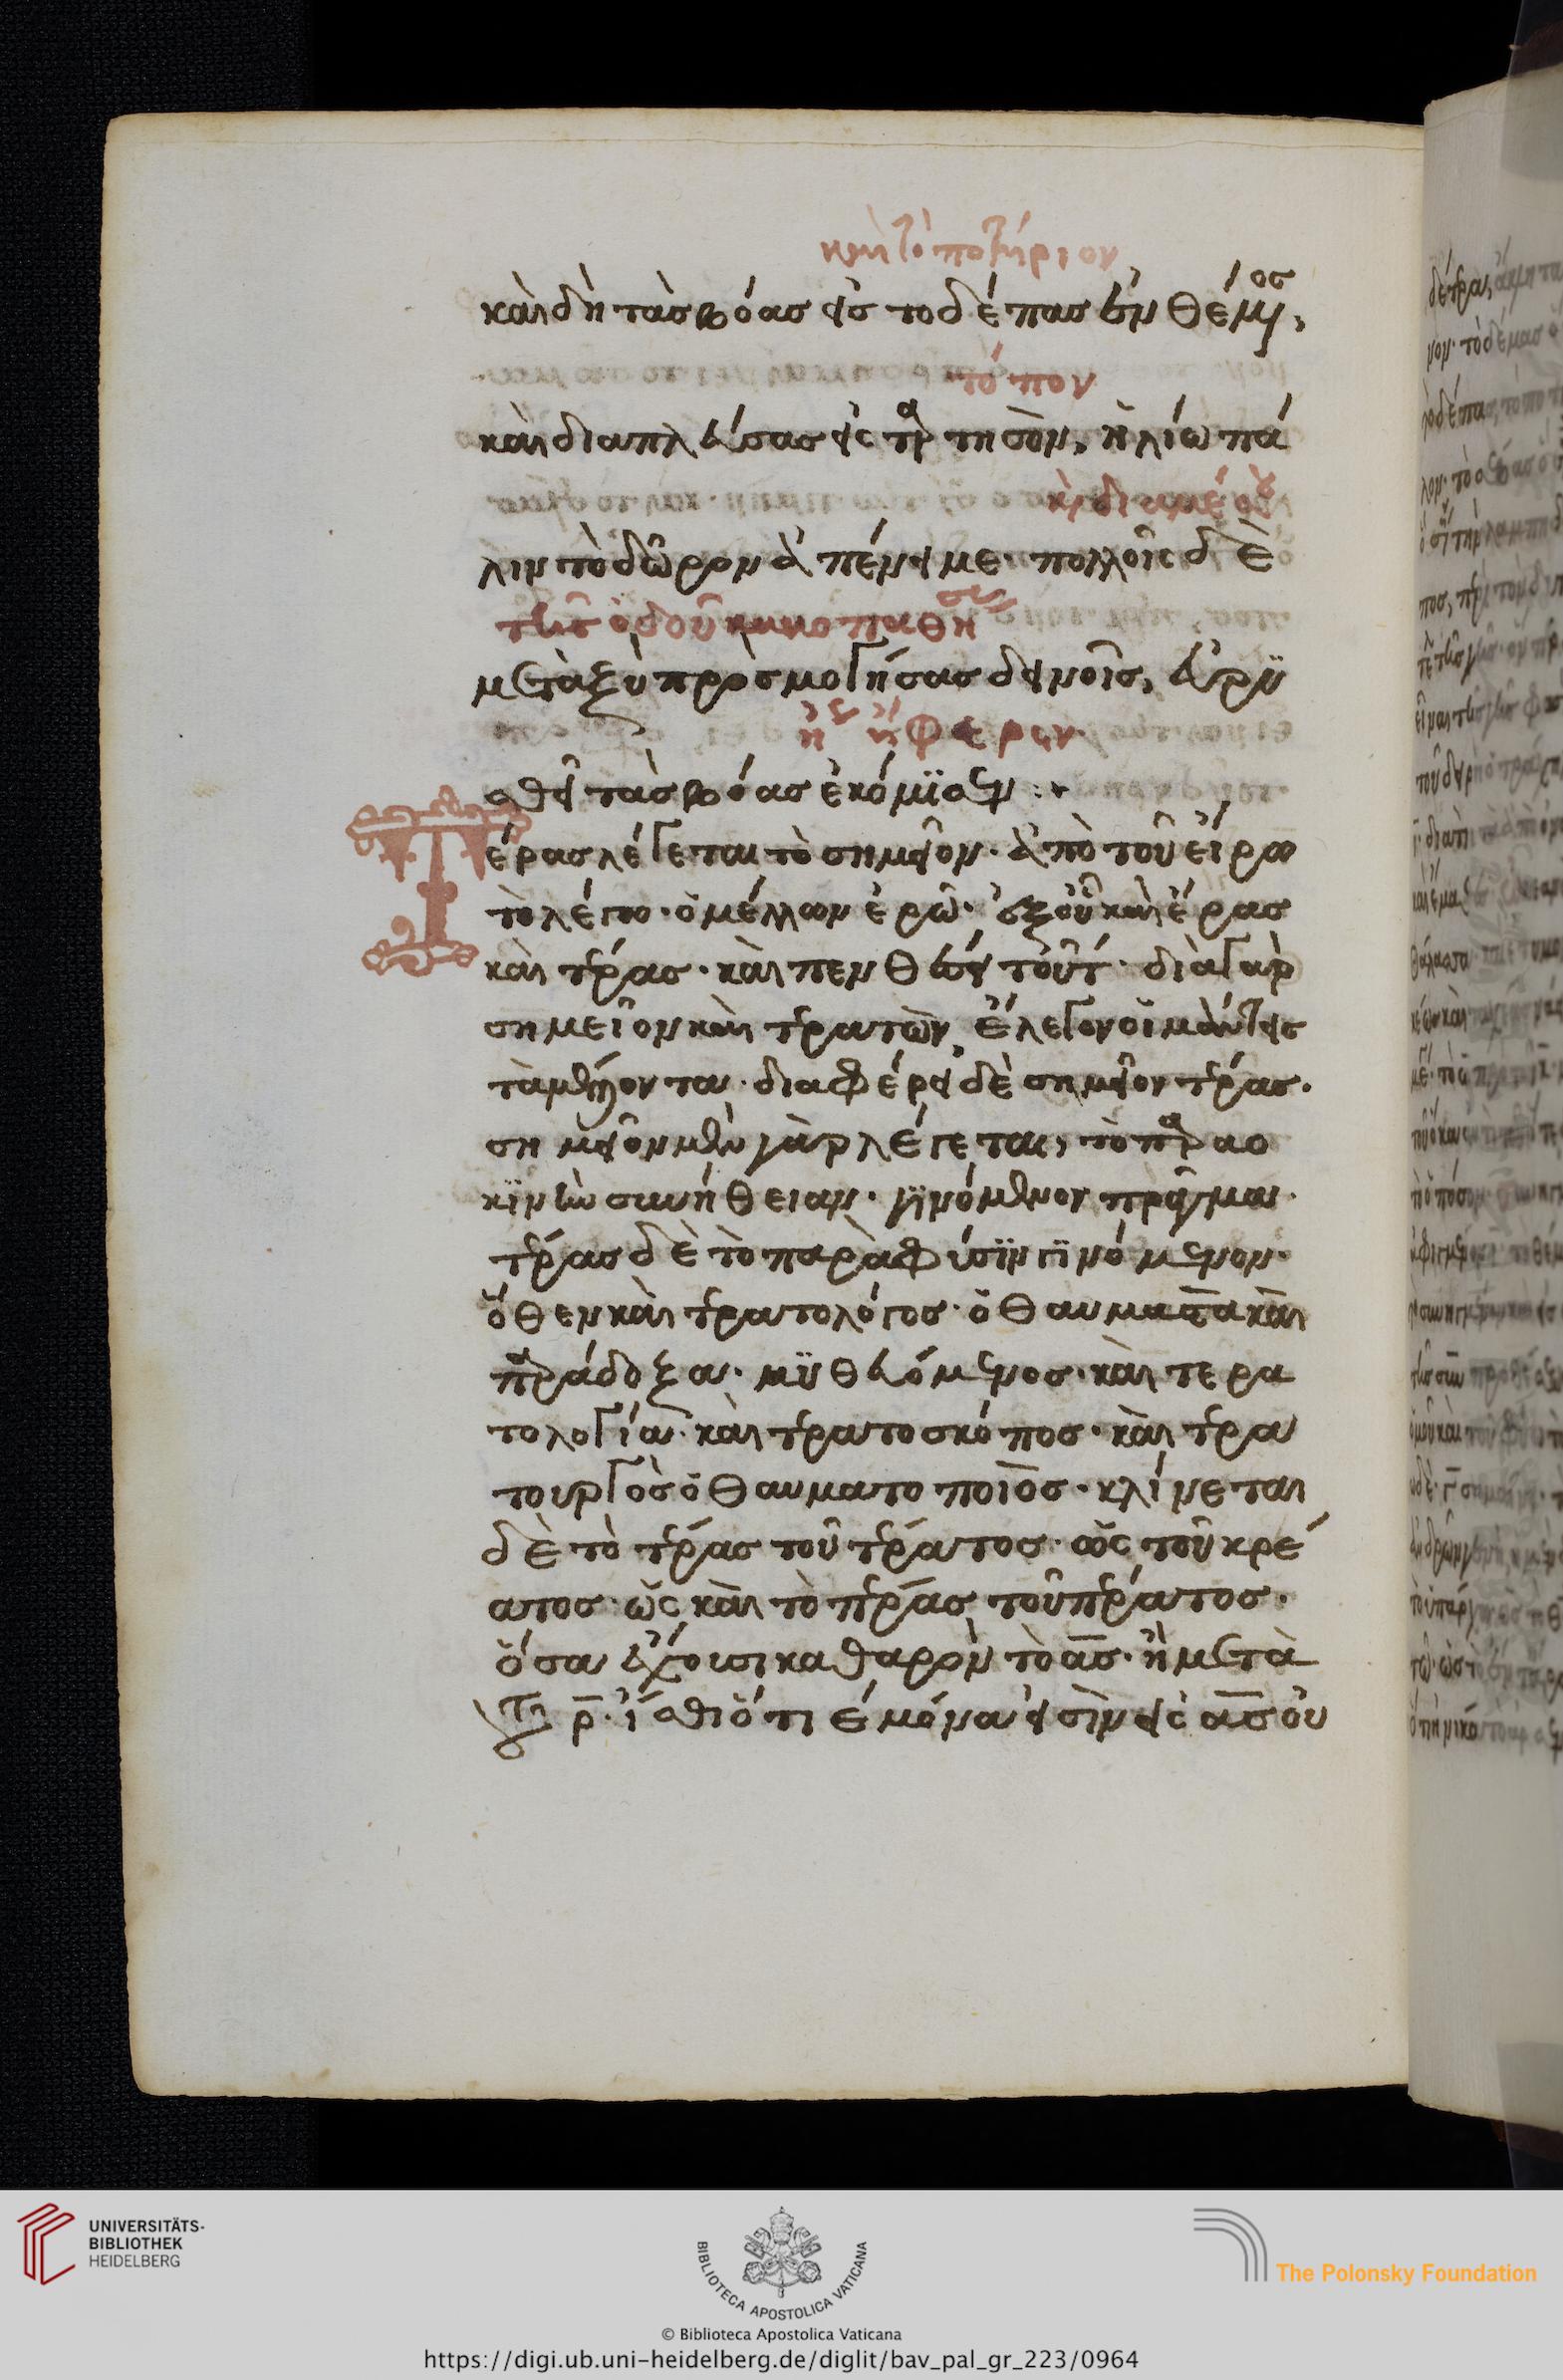 τὸ ποτήριον
καὶ δὴ τὰς βόας εἰς το δέπας ἐνθέμενος,
τόπον
καὶ διαπλεύσας εἰς Ταρτησὸν, ἡλίω πά
λιν τὸ δῶρον ἀπένειμε· πολλοῖς δὲ
τῆς ὁδοῦ κακοπαθη
μεταξὺ προσμογήσας δεινοῖς, εὐρυ
ἤφερεν
σθεῖ τὰς βόας ἐκόμϊσεν :
Τέρας λέγεται τὸ σημεῖον· ἀπὸ τοῦ εἴρω
τὸ λέγω· ὁ μέλλων ἐρῶ· ἐξ οὗ καὶ ἔρας
καὶ τέρας· καὶ πενθ τοῦτ· διὰ γὰρ
σημεῖον καὶ τεράτων, ἔλεγον οἱ μάντεις
τὰ μέλλοντα· διαφέρει δὲ σημεῖον τέρας·
σημεῖον μὲν γὰρ λέγεται, τὸ παρὰ
κϊνὴν συνήθειαν· γϊνόμενον πρᾶγμα·
τέρας δὲ τὸ παρὰ φύσϊν γϊνόμενον·
ὅθεν καὶ τερατολόγος· ὁ θαυμαστὰ καὶ
παράδοξα· μϋθευόμενος· καὶ τερα
τολογία· καὶ τερατοσκόπος· καὶ τερα
τουργὸς ὁ θαυματοποιὸς· κλίνεται
δὲ τὸ τέρας τοῦ τέρατος· ὡς τοῦ κρέ
ατος· ὡς καὶ τὸ πέρας τοῦ πέρατος·
ὅσα ἔχουσι καθαρὸν τὸ ας· ἢ μετὰ
τοῦ ρ· ἴσθι ὅτι ἓ μόνα εἰσὶν εἰς ας οὐ
UNIVERSITÄTS-
BIBLIOTHEK
HEIDELBERG
BIBLIOTECA APOSTOLICA VATICANA
The Polonsky Foundation
© Biblioteca Apostolica Vaticana
https://digi.ub.uni-heidelberg.de/diglit/bav_pal_gr_223/0964